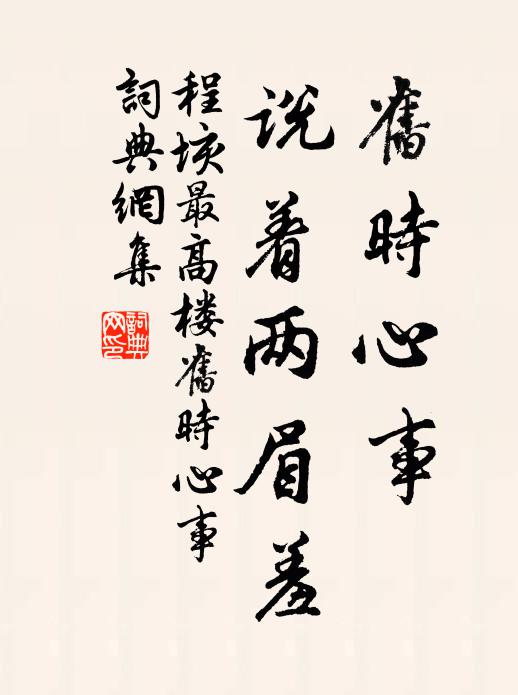 舊時心事
説着两眉羞
程垓最高楼舊時心事
詞典網集
詞典網印